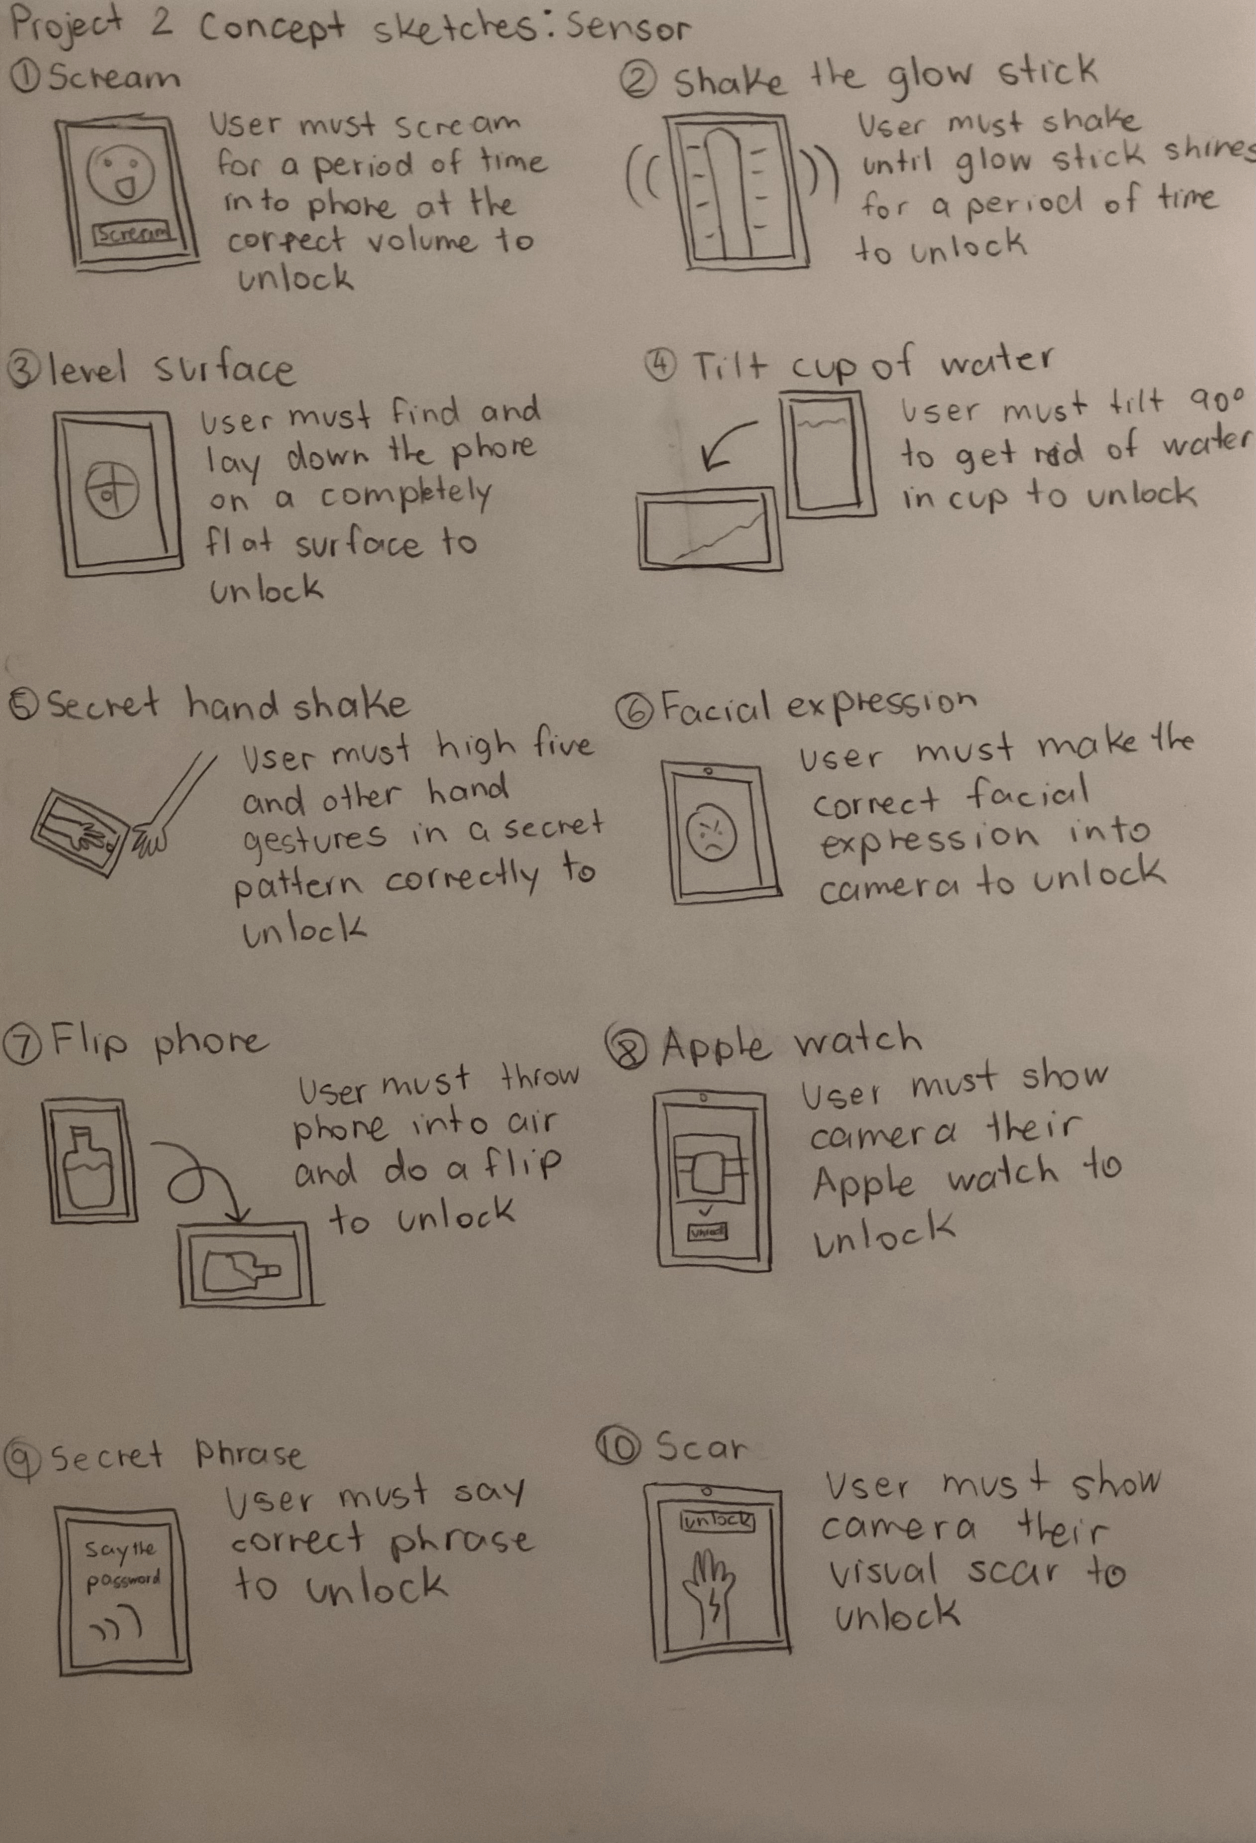 Project 2 Concept sketches: Sensor
① Scream
User must scream
for a period of time
into phone at the
correct volume to
unlock
Scream
② Shake the glow stick
User must shake
until glow stick shines
for a period of time
to unlock
③ level surface
User must find and
lay down the phone
on a completely
flat surface to
unlock
④ Tilt cup of water
User must tilt 90°
to get rid of water
in cup to unlock
⑤ Secret hand shake
User must high five
and other hand
gestures in a secret
pattern correctly to
unlock
⑥ Facial expression
User must make the
correct facial
expression into
camera to unlock
⑦ Flip phone
User must throw
phone into air
and do a flip
to unlock
⑧ Apple watch
User must show
camera their
Apple watch to
unlock
unlock
⑨ Secret Phrase
User must say
correct phrase
to unlock
Say the
password
⑩ Scar
User must show
camera their
visual scar to
unlock
unlock